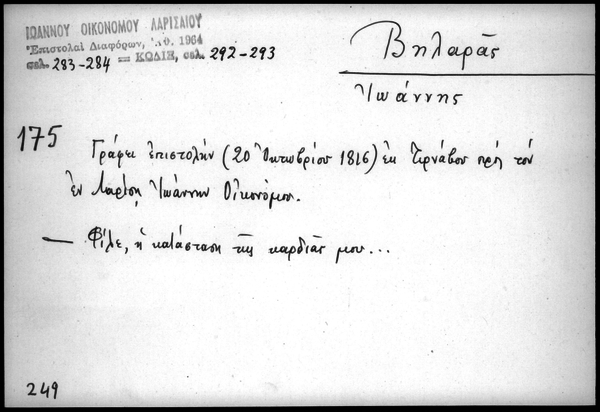 ΙΩΑΝΝΟΥ ΟΙΚΟΝΟΜΟΥ ΛΑΡΙΣΑΙΟΥ
Ἐπιστολαὶ Διαφόρων, Ἀθ. 1964
σελ. 283-284 = ΚΩΔΙΞ, σελ. 292-293
Βηλαρᾶς
Ἰωάννης
175
Γράφει ἐπιστολὴν (20 Ὀκτωβρίου 1816) ἐκ Τιρνάβου πρὸς τὸν
ἐν Λαρίσῃ Ἰωάννην Οἰκονόμου.
— Φίλε, ἡ κατάσταση τῆς καρδιᾶς μου...
249